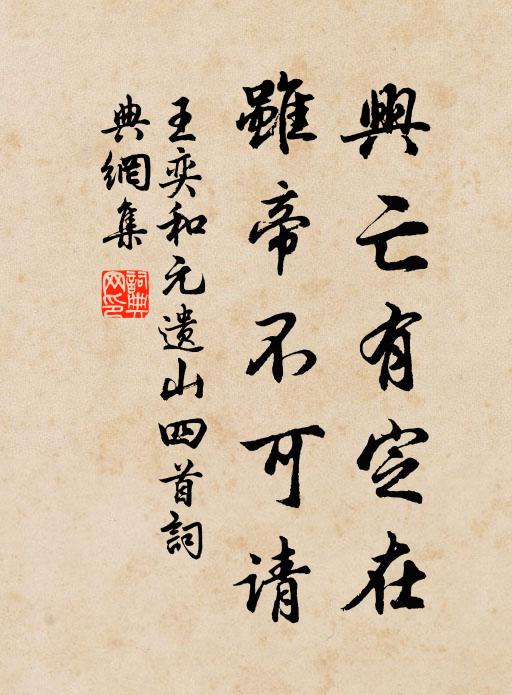 興亡有定在
雖帝不可请
王奕和元遗山四首詞
典網集
詞典网印